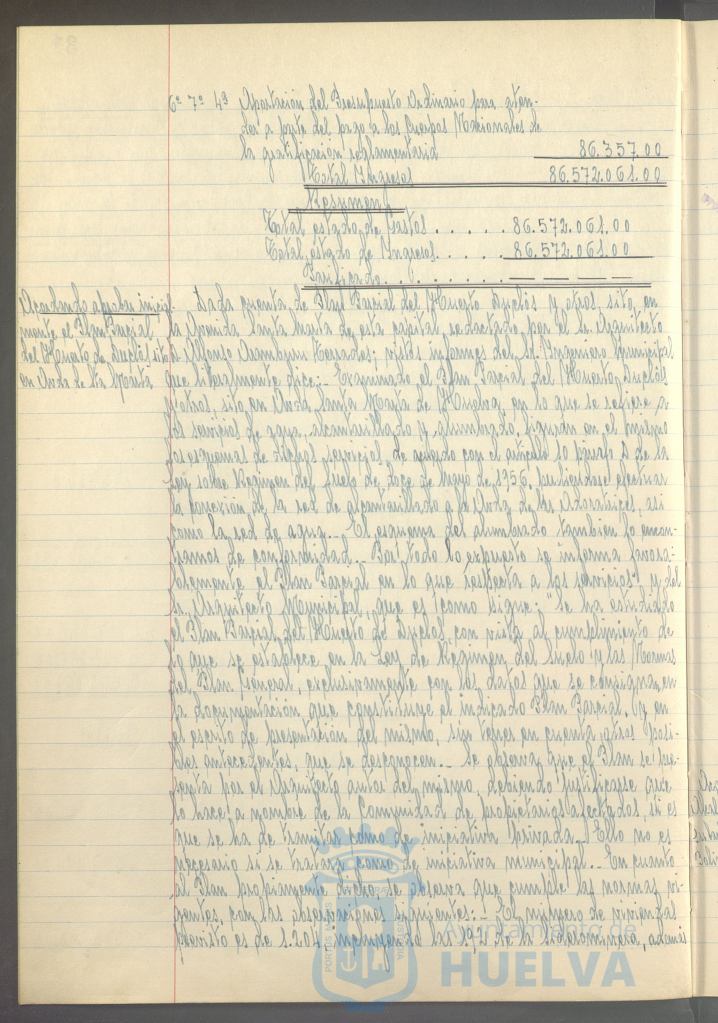 6º 7º 4º Aportación del Presupuesto Ordinario para aten-
der a parte del pago a los Cuerpos Nacionales de
la gratificación reglamentaria 86.357.00
Total Ingresos 86.572.061.00
Resumen
Total estado de Gastos . . . . . 86.572.061.00
Total estado de Ingresos . . . . . 86.572.061.00
Acordando aprobar inicial-
mente el Plan Parcial
del Huerto de Duclós sito
en Avda de Sta Marta
Dada cuenta de Plan Parcial del Huerto Duclós y otros, sito, en
la Avenida Santa Marta de esta capital, redactado por el Sr. Arquitecto
D. Alfonso Aramburu Terrades; vistos informes del Sr. Ingeniero Municipal
que literalmente dice:- Examinado el Plan Parcial del Huerto Duclós
y otros, sito en Avda Santa Marta de Huelva, en lo que se refiere a
los servicios de agua, alcantarillado y alumbrado, figuran en el mismo
los esquemas de dichos servicios, de acuerdo con el artículo 10 párrafo de la
Ley sobre Régimen del Suelo de doce de Mayo de 1956, pudiendose efectuar
la conexión de la red de alcantarillado a la Avda de las Adoratrices, así
como la red de agua.- El esquema del alumbrado tambien lo encon-
tramos de conformidad. Por todo lo expuesto se informa favora-
blemente el Plan Parcial en lo que respecta a los servicios" y del
Sr. Arquitecto Municipal, que es como sigue: "Se ha estudiado
el Plan Parcial del Huerto de Duclós, con vista al cumplimiento de
lo que se establece en la Ley de Régimen del Suelo y las Normas
del Plan General, exclusivamente con los datos que se consignan en
la documentación que constituye el indicado Plan Parcial, y en
el escrito de presentación del mismo, sin tener en cuenta otros posi-
bles antecedentes, que se desconocen.- Se observa que el Plan se pre-
senta por el Arquitecto autor del mismo, debiendo justificarse que
lo hace a nombre de la Comunidad de propietarios afectados, si es
que se ha de tramitar como de iniciativa privada. Ello no es
necesario si se tratara como de iniciativa municipal.- En cuanto
al Plan propiamente dicho, se observa que cumple las normas vi-
gentes, con las observaciones siguientes:- El número de viviendas
previsto es de 1.304, incluyendo las 192 de la Siderominera, además
Ayuntamiento de
HUELVA